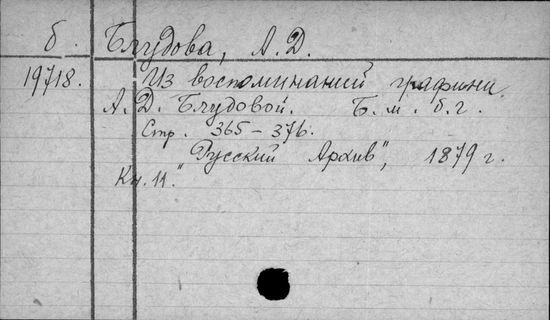 б. Блудова, А. Д.
19718. Из воспоминаний графини
А. Д. Блудовой. Б. м. б. г.
Стр. 365-376.
"Русский Архив", 1879 г.
Кн. 11.